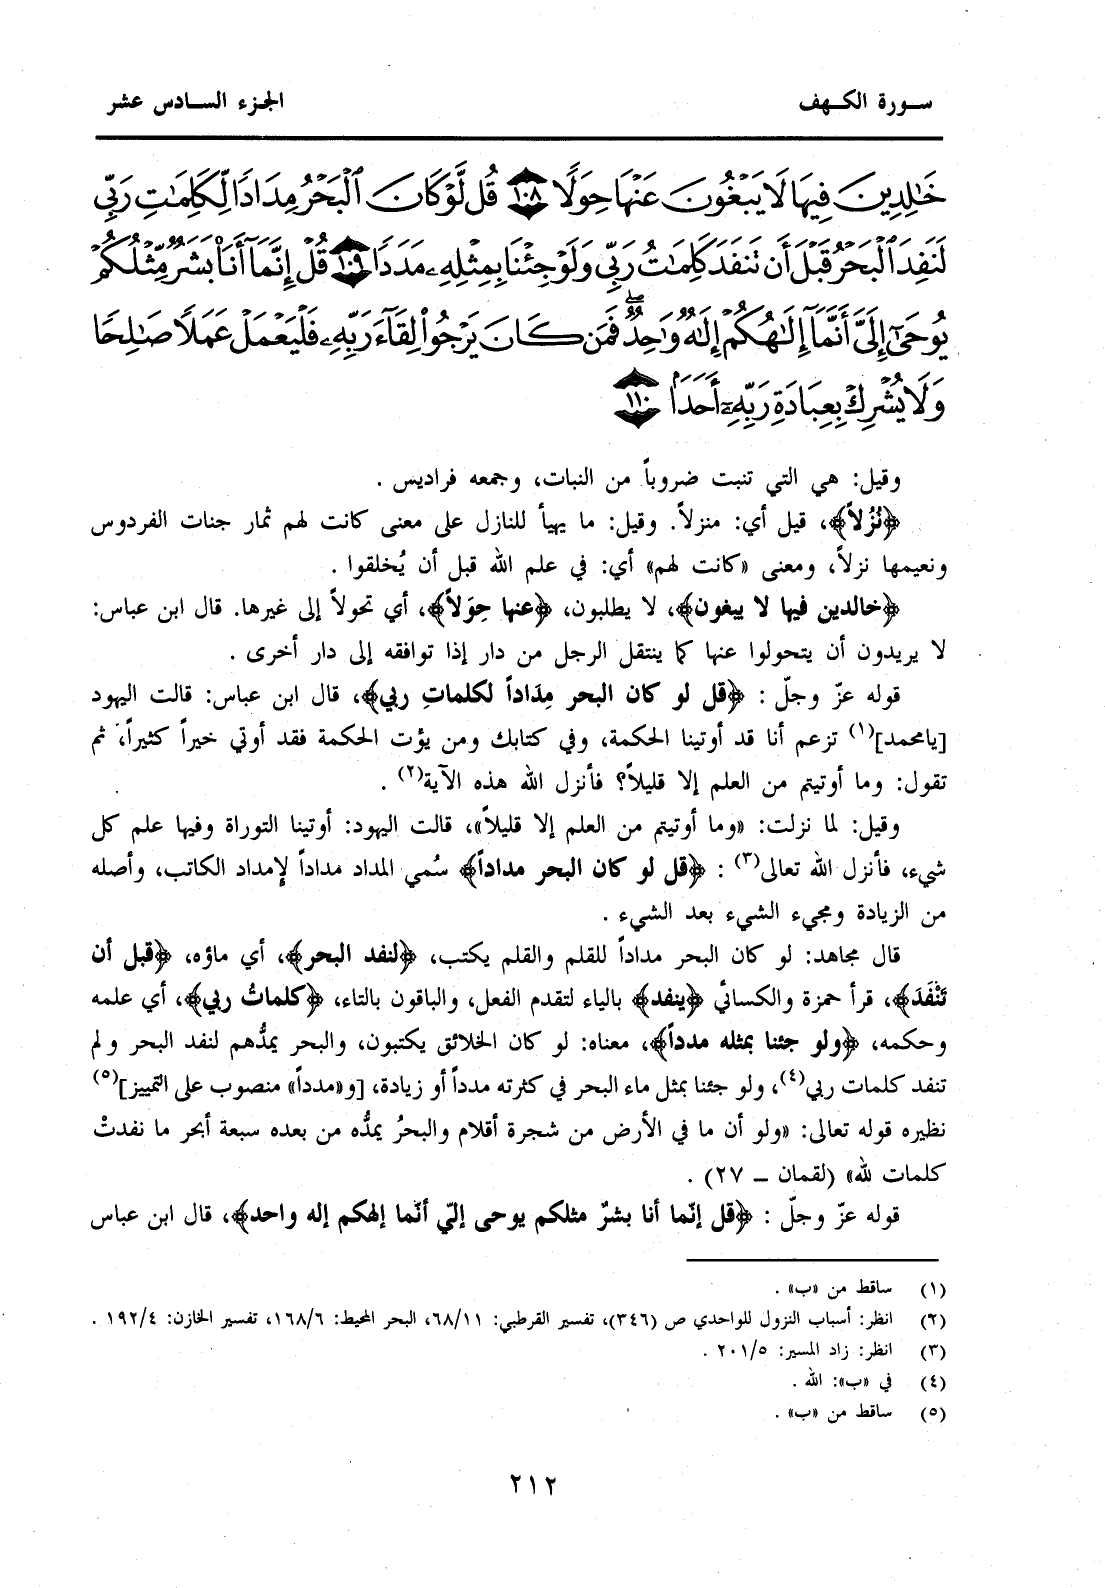 سورة الكهف
الجزء السادس عشر
خَٰلِدِينَ فِيهَا لَا يَبْغُونَ عَنْهَا حِوَلًا ١٠٨ قُل لَّوْ كَانَ ٱلْبَحْرُ مِدَادًا لِّكَلِمَٰتِ رَبِّى
لَنَفِدَ ٱلْبَحْرُ قَبْلَ أَن تَنفَدَ كَلِمَٰتُ رَبِّى وَلَوْ جِئْنَا بِمِثْلِهِۦ مَدَدًا ١٠٩ قُلْ إِنَّمَآ أَنَا۠ بَشَرٌ مِّثْلُكُمْ
يُوحَىٰٓ إِلَىَّ أَنَّمَآ إِلَٰهُكُمْ إِلَٰهٌ وَٰحِدٌ ۖ فَمَن كَانَ يَرْجُوا۟ لِقَآءَ رَبِّهِۦ فَلْيَعْمَلْ عَمَلًا صَٰلِحًا
وَلَا يُشْرِكْ بِعِبَادَةِ رَبِّهِۦٓ أَحَدًۢا ١١٠
وقيل: هي التي تنبت ضروباً من النبات، وجمعه فراديس .
﴿نُزُلاً﴾، قيل أي: منزلاً. وقيل: ما يهيأ للنازل على معنى كانت لهم ثمار جنات الفردوس
ونعيمها نزلاً، ومعنى «كانت لهم» أي: في علم الله قبل أن يُخلقوا .
﴿خالدين فيها لا يبغون﴾، لا يطلبون، ﴿عنها حِوَلاً﴾، أي تحولاً إلى غيرها. قال ابن عباس:
لا يريدون أن يتحولوا عنها كما ينتقل الرجل من دار إذا توافقه إلى دار أخرى .
قوله عزّ وجلّ : ﴿قل لو كان البحر مِدَاداً لكلماتِ ربي﴾، قال ابن عباس: قالت اليهود
[يامحمد](١) تزعم أنا قد أوتينا الحكمة، وفي كتابك ومن يؤت الحكمة فقد أوتي خيراً كثيراً، ثم
تقول: وما أوتيتم من العلم إلا قليلاً؟ فأنزل الله هذه الآية(٢) .
وقيل: لما نزلت: «وما أوتيتم من العلم إلا قليلاً»، قالت اليهود: أوتينا التوراة وفيها علم كل
شيء، فأنزل الله تعالى(٣) : ﴿قل لو كان البحر مداداً﴾ سُمي المداد مداداً لإمداد الكاتب، وأصله
من الزيادة ومجيء الشيء بعد الشيء .
قال مجاهد: لو كان البحر مداداً للقلم والقلم يكتب، ﴿لنفد البحر﴾، أي ماؤه، ﴿قبل أن
تَنْفَدَ﴾، قرأ حمزة والكسائي ﴿ينفد﴾ بالياء لتقدم الفعل، والباقون بالتاء، ﴿كلماتُ ربي﴾، أي علمه
وحكمه، ﴿ولو جئنا بمثله مدداً﴾، معناه: لو كان الخلائق يكتبون، والبحر يمدُّهم لنفد البحر ولم
تنفد كلمات ربي(٤)، ولو جئنا بمثل ماء البحر في كثرته مدداً أو زيادة، [و«مدداً» منصوب على التمييز](٥)
نظيره قوله تعالى: «ولو أن ما في الأرض من شجرة أقلام والبحرُ يمدُّه من بعده سبعة أبحر ما نفدتْ
كلمات لله» (لقمان ــ ٢٧) .
قوله عزّ وجلّ : ﴿قل إنّما أنا بشرٌ مثلكم يوحى إليّ أنّما إلهكم إله واحد﴾، قال ابن عباس
(١) ساقط من «ب» .
(٢) انظر: أسباب النزول للواحدي ص (٣٤٦)، تفسير القرطبي: ٦٨/١١، البحر المحيط: ١٦٨/٦، تفسير الخازن: ١٩٢/٤ .
(٣) انظر: زاد المسير: ٢٠١/٥ .
(٤) في «ب»: الله .
(٥) ساقط من «ب» .
٢١٢